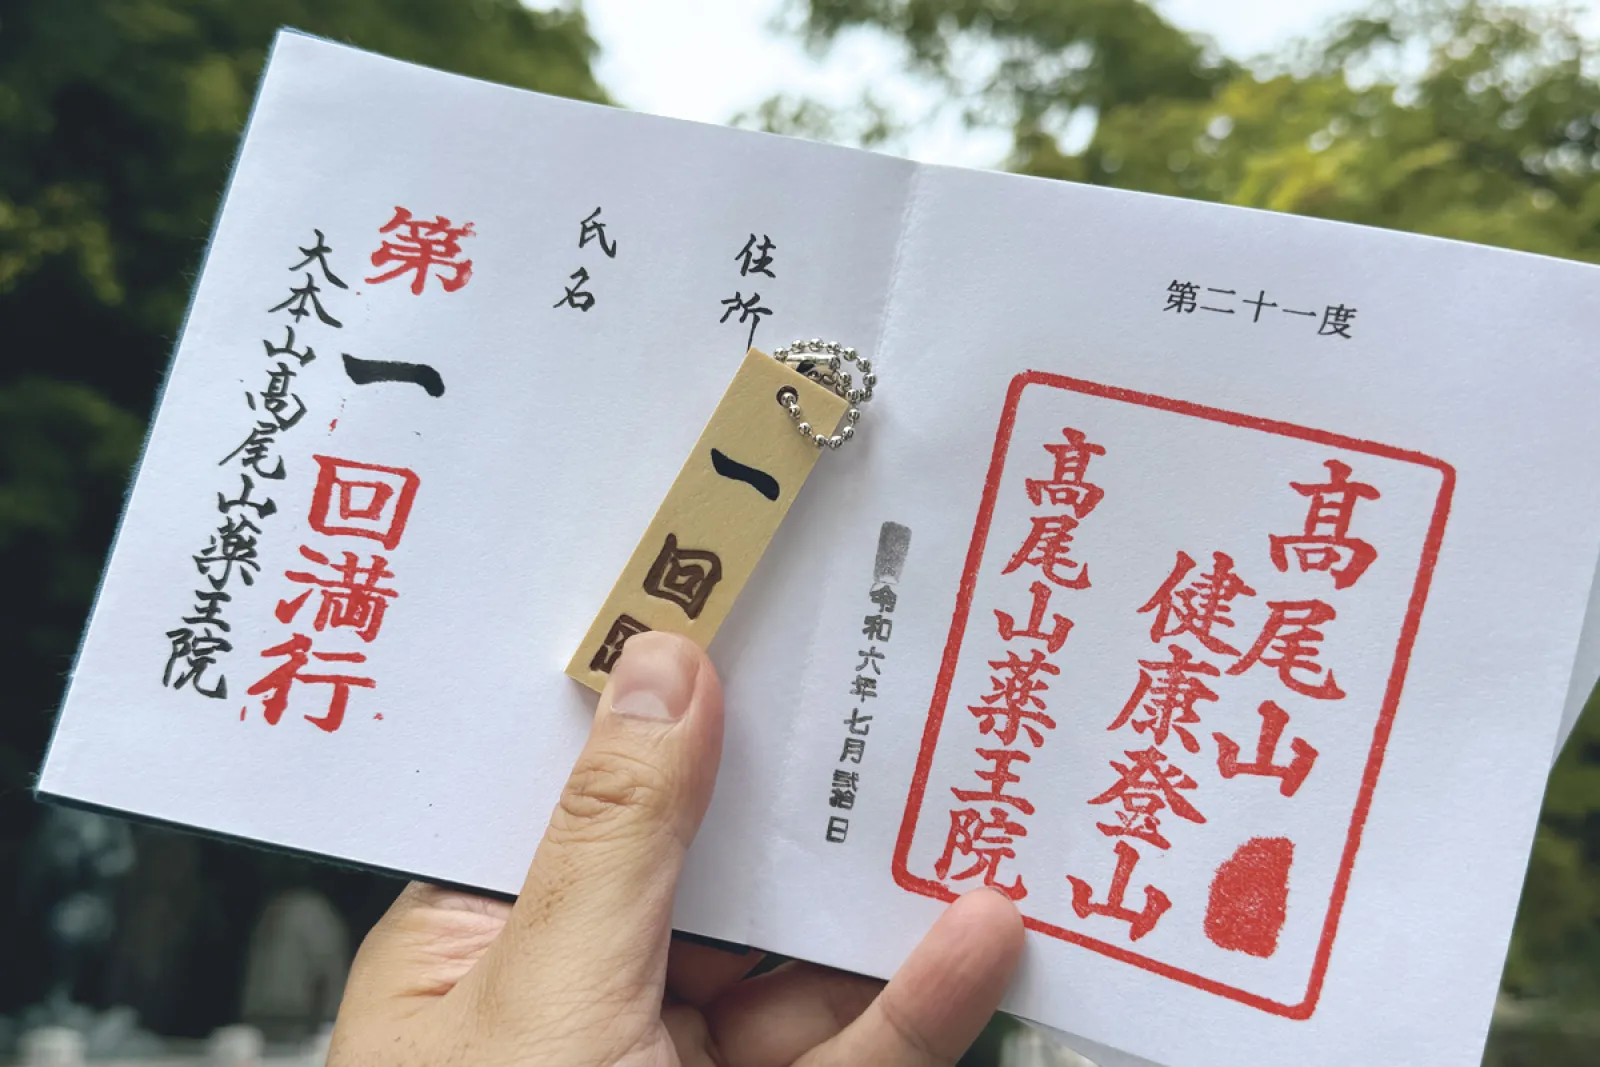 第二十一度
高尾山
健康登山
高尾山薬王院
令和六年七月弐拾日
住所
氏名
第一回満行
大本山高尾山薬王院
一回